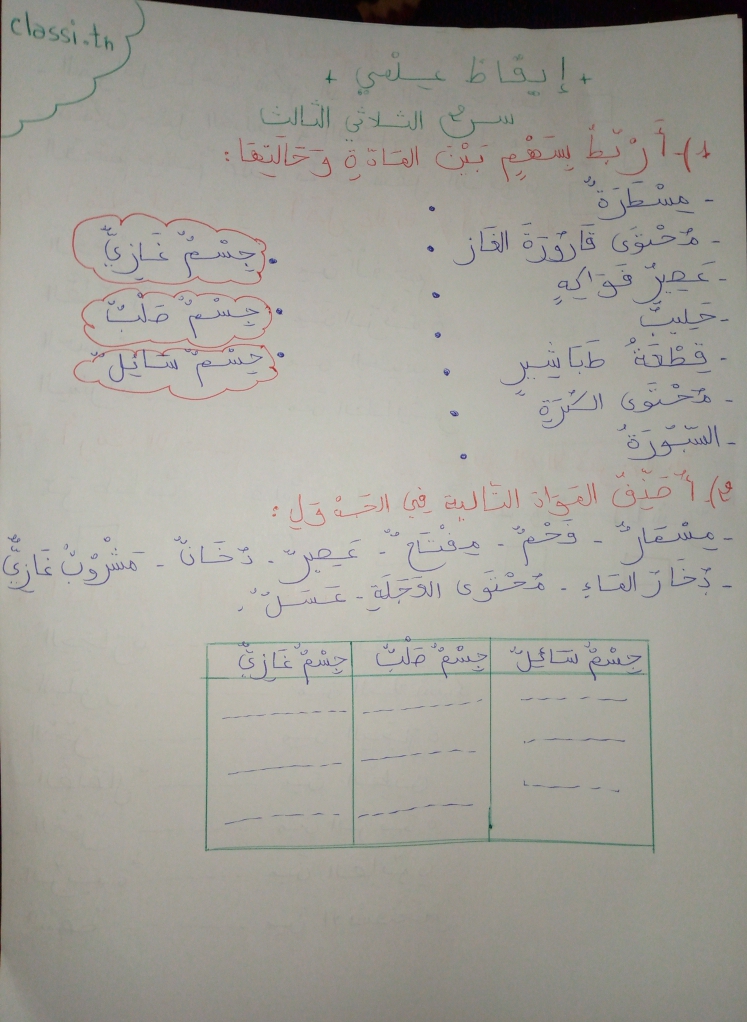 classi.tn
+ إيقاظ علمي +
س3 الثلاثي الثالث
1)- أَرْبِطُ بِسَهْمٍ بَيْنَ المَادَةِ وَحَالَتِهَا:
- مِسْطَرَةٌ
- مُحْتَوَى قَارُورَةَ الغَاز
- عَصِيرُ فَوَاكِهٍ
- حَلِيبٌ
- قِطْعَةُ طَبَاشِيرٍ
- مُحْتَوَى الكُرَةِ
- السَّبُّورَةُ
جِسْمٌ غَازِيٌّ
جِسْمٌ صَلْبٌ
جِسْمٌ سَائِلٌ
2)- أُصَنِّفُ المَوَادَ التَّالِية فِي الجَدْوَلِ:
- مِسْمَارٌ - فَحْمٌ - مِفْتَاحٌ - عَصِيرٌ - دُخَانٌ - مَشْرُوبٌ غَازِيٌّ
- بُخَارُ المَاءِ - مُحْتَوَى العَجَلَةِ - عَسَلٌ.
جِسْمٌ سَائِلٌ جِسْمٌ صَلْبٌ جِسْمٌ غَازِيٌّ